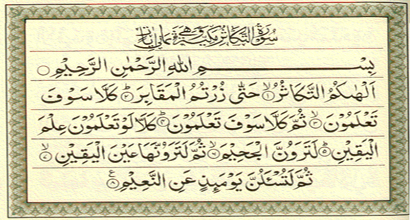 سُوْرَةُ التَّكَاثُرِ مَكِّيَّةٌ وَّهِيَ ثَمَانِي اٰيَاتٍ
بِسْمِ اللهِ الرَّحْمٰنِ الرَّحِيْمِ
اَلْهٰىكُمُ التَّكَاثُرُ ۙ۱ حَتّٰى زُرْتُمُ الْمَقَابِرَ ؕ۲ كَلَّا سَوْفَ
تَعْلَمُوْنَ ۙ۳ ثُمَّ كَلَّا سَوْفَ تَعْلَمُوْنَ ؕ۴ كَلَّا لَوْ تَعْلَمُوْنَ عِلْمَ
الْيَقِيْنِ ؕ۵ لَتَرَوُنَّ الْجَحِيْمَ ۙ۶ ثُمَّ لَتَرَوُنَّهَا عَيْنَ الْيَقِيْنِ ۙ۷
ثُمَّ لَتُسْـَٔلُنَّ يَوْمَىِٕذٍ عَنِ النَّعِيْمِ ۸